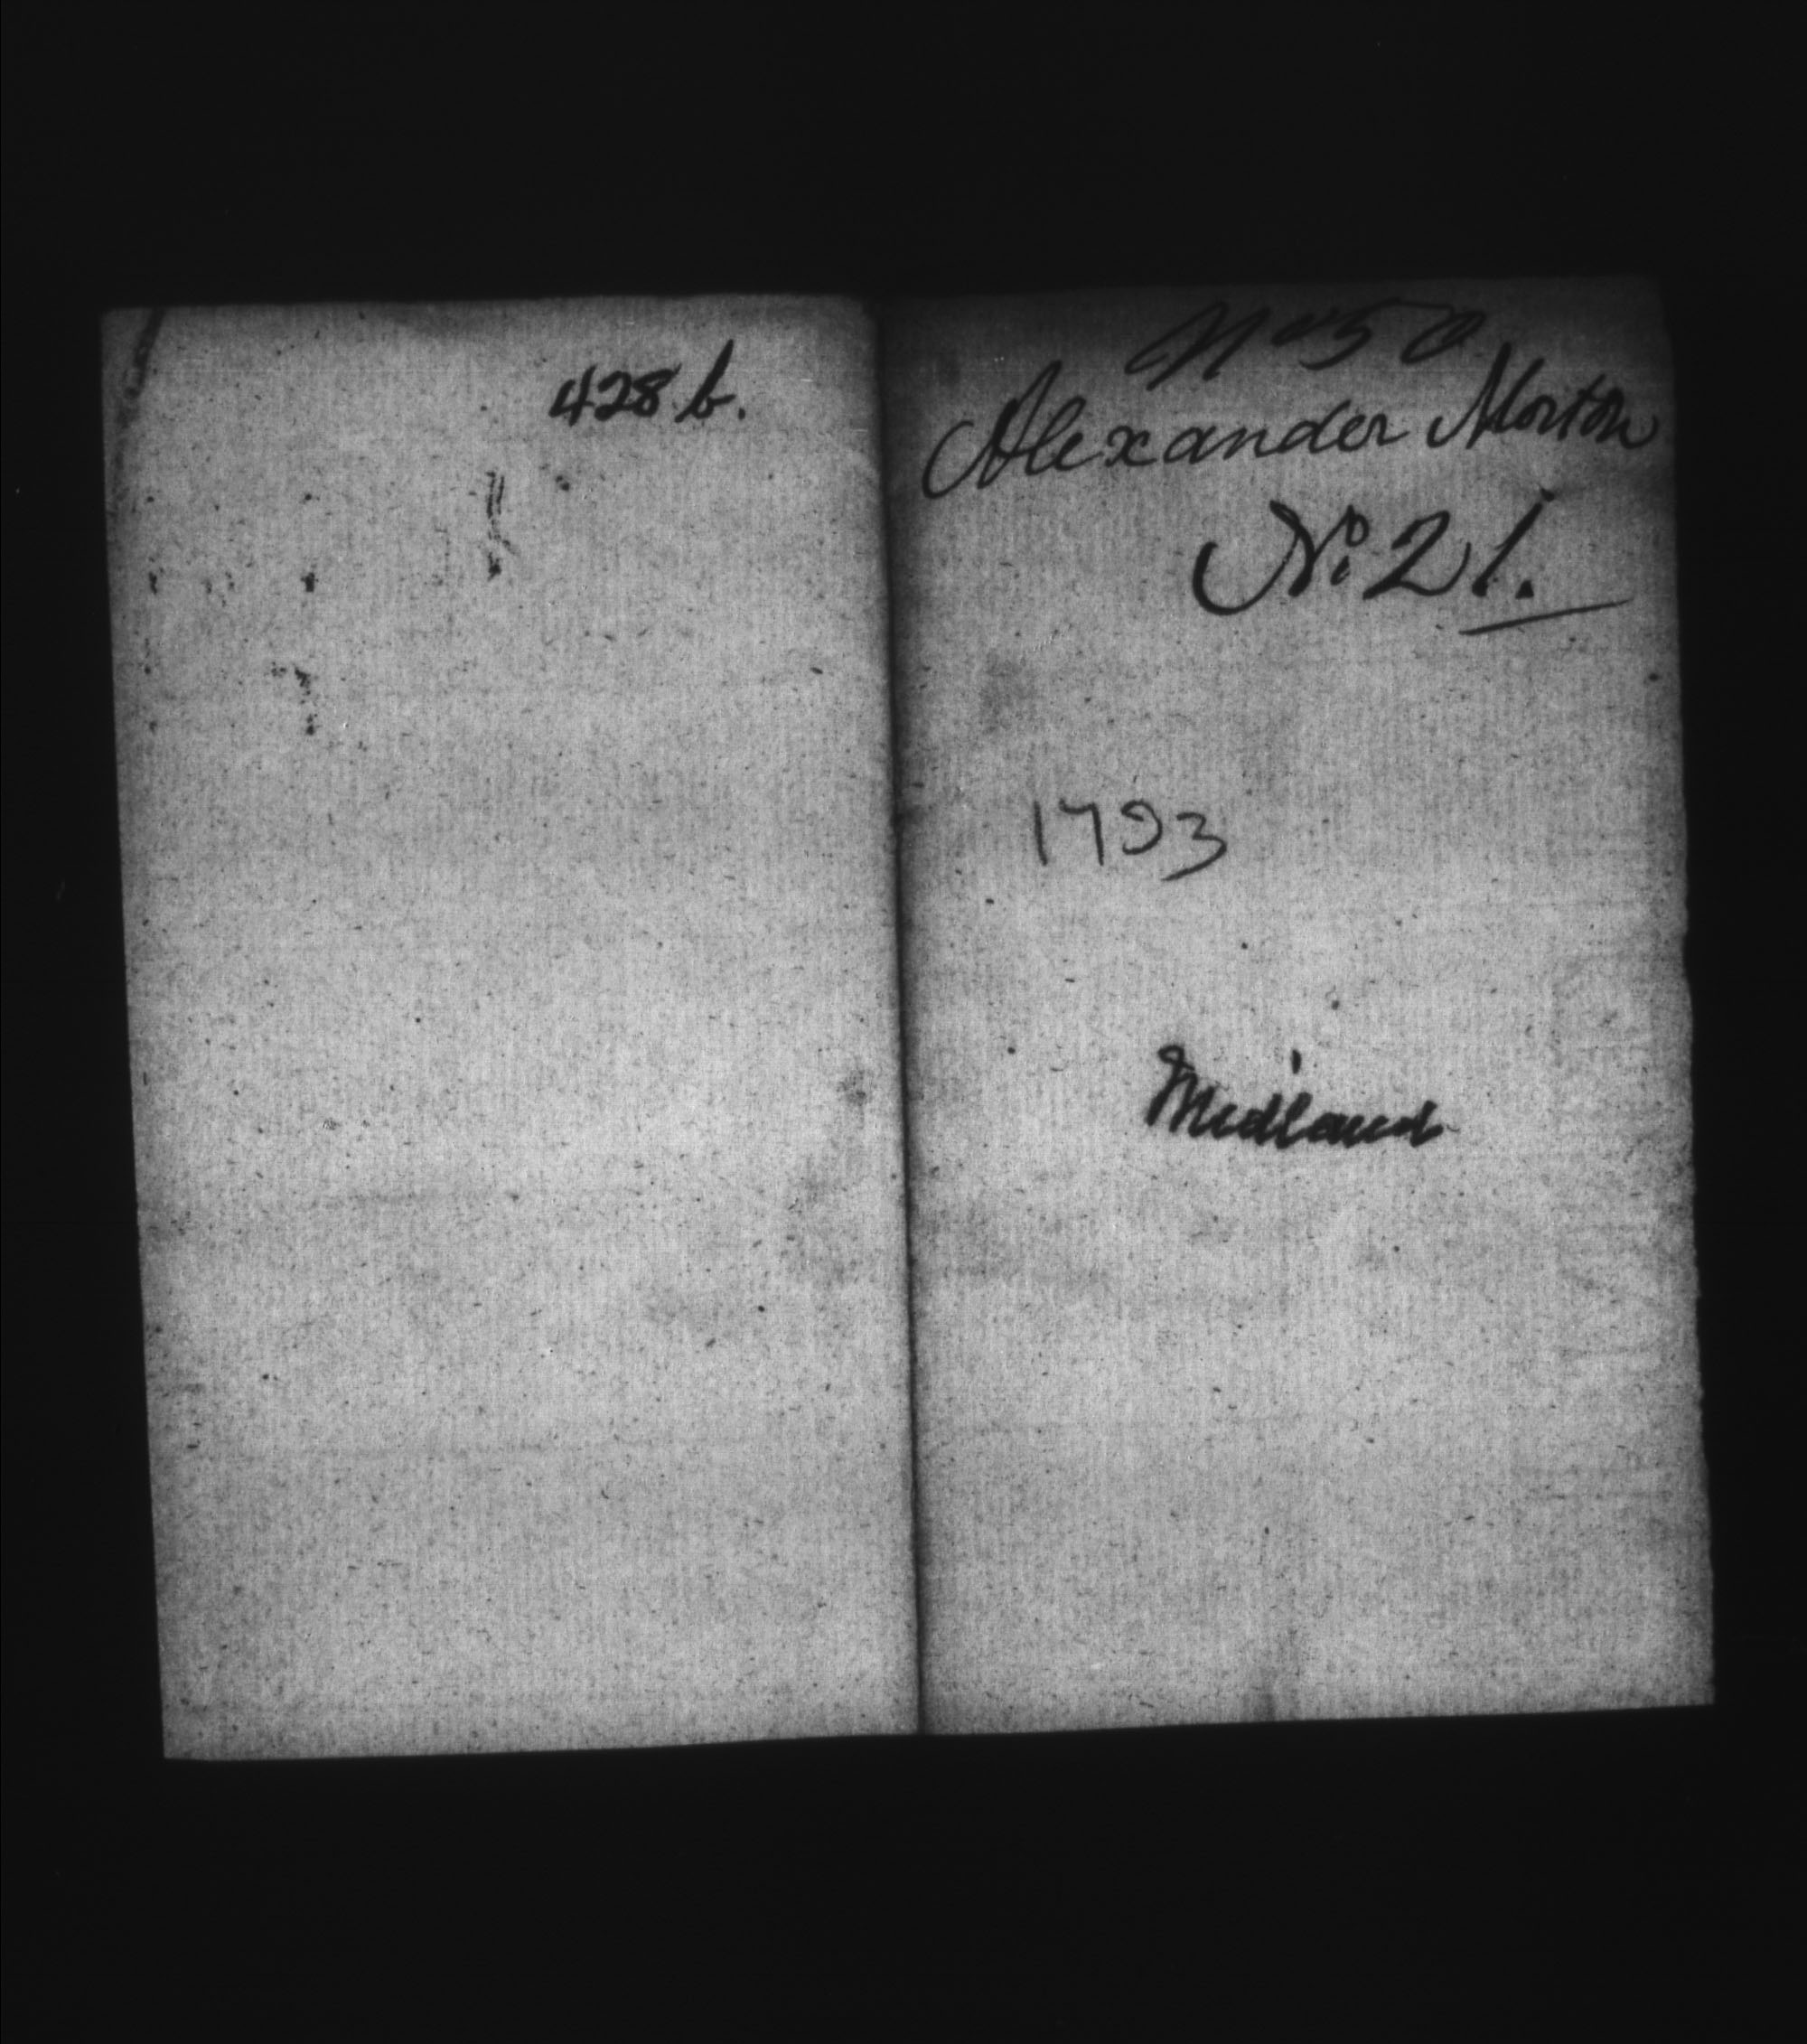 428 b.
No 50
Alexander Morton
No. 21.
1793
Midland